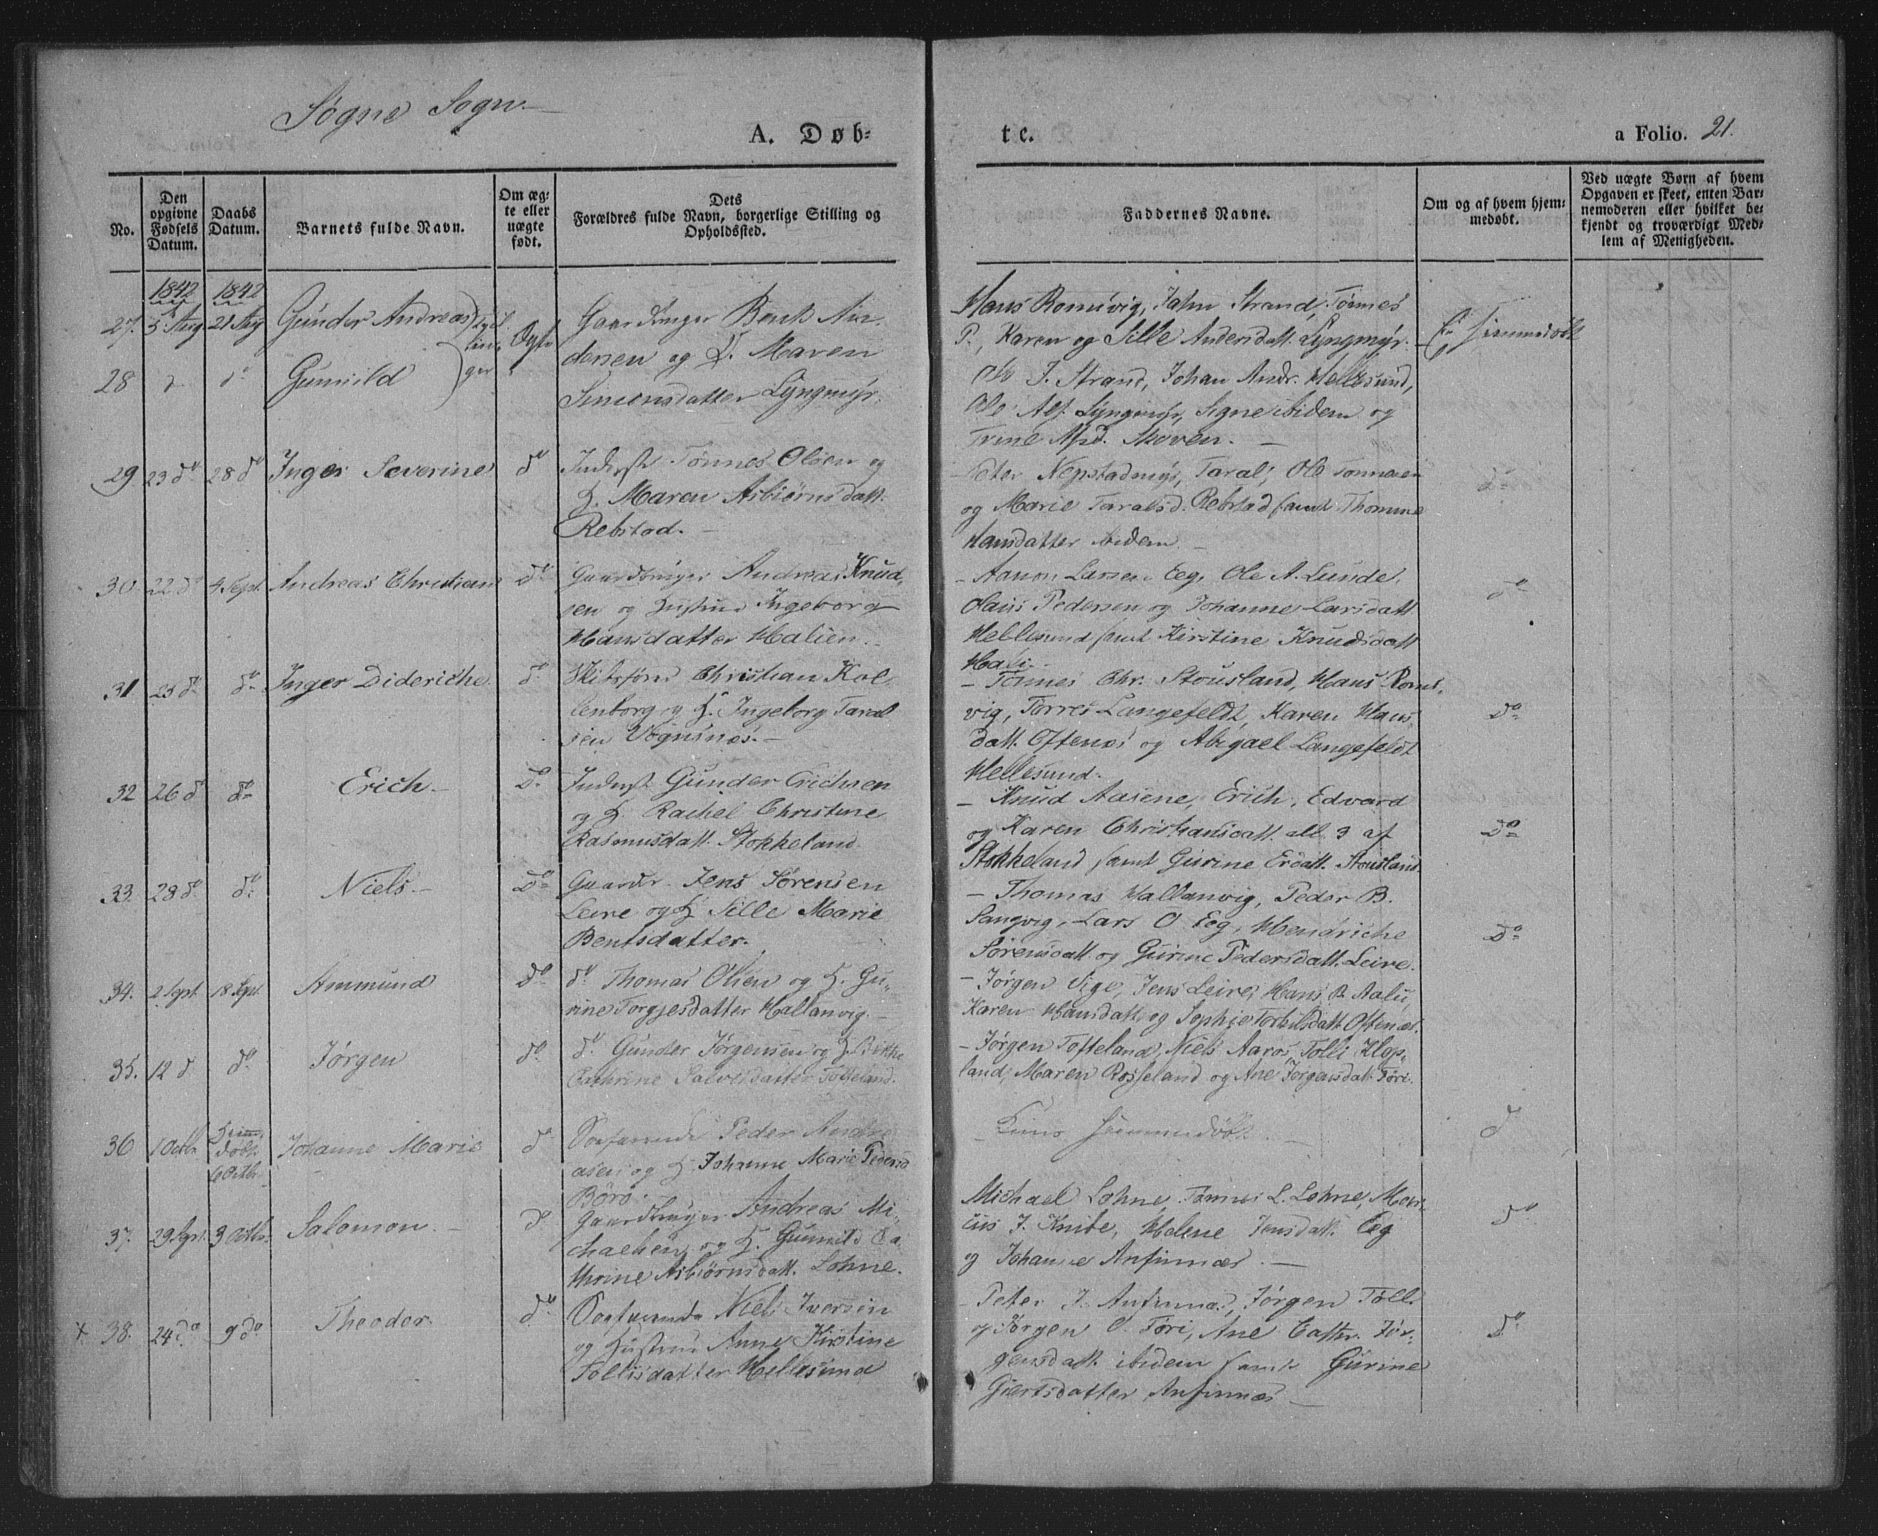 Søgne Sogn.
A. Døb-
te.
a Folio. 21.
No.
Den opgivne Fødsels Datum.
Daabs Datum.
Barnets fulde Navn.
Om æg-
te eller
uægte
født.
Dets
Forældres fulde Navn, borgerlige Stilling og
Opholdssted.
Faddernes Navne.
Om og af hvem hjem-
medøbt.
Ved uægte Børn af hvem
Opgaven er skeet, enten Bar-
nemoderen eller hvilket be-
kjendt og troværdigt Med-
lem af Menigheden.
1842 1842
27. 5 Aug 21 Aug Gunder Andreas
28 d° Gunild
Ægte
Gaardbruger Bent An-
dersen og H. Maren
Simensdatter Lyngmyr.
Hans Romsvig, Jahn Strand, Tønnes
P., Karen og Sille Andersdatt. Lyngmyr.
Ole J. Strand, Johan Andr. Hellesund,
Ole Alf. Lyngmyr, Signe ibidem og
Trine Skoven.
Ei hjemmedøbt
29 23 d° 28 d° Inger Severine d°
Inderst Tønnes Olsen og
H. Maren Asbiørnsdatt.
Rebstad.
Peter Nepstadmyr, Taral, Ole Tonnesen
og Marie Taralsd. Rebstad samt Thomine
Hansdatter ibidem
d°
30 22 d° 4 Sept. Andreas Christian D°
Gaardbruger Andreas Knud-
sen og Hustrue Ingeborg
Hansdatter Halien.
Aanon Larsen Eeg, Ole A. Lunde,
Olaus Pedersen og Johanne Larsdatt
Hellesund samt Kirstine Knudsdatt
Hali.
d°
31 25 d° d° Inger Dideriche d°
Skibsfører Christian Kal-
lenborg og H. Ingeborg Taral
sen Vognsnes.
Tønnes Chr. Stousland, Hans Roms-
vig, Torres Langefeldt, Karen Hans-
datt. Oftenes og Abigael Langefeldt
Hellesund.
D°
32 26 d° d° Erich D°
Inderst Gunder Erichsen
og H. Rachel Christine
Rasmusdatt. Stokkeland
Knud Aasene, Erich, Edvard
og Karen Christiansdatt. all. 3 af
Stokkeland samt Gurine Ersdatt. Stousland
D°
33. 28 d° d° Niels D°
Gaardbr. Jens Sørensen
Leire og H. Sille Marie
Bentsdatter.
Thomas Hallanvig, Peder B.
Sangvig, Lars O Eeg, Hendriche
Sørensdatt. og Gurine Pedersdatt. Leire.
D°
34. 2 Sept. 18 Sept. Ammund D°
d° Thomas Olsen og H. Gu-
rine Torgjesdatter Hallanvig.
Jørgen Vige, Jens Leire, Hans B. Aalu,
Karen Hansdatt. og Sophie Torkilsdatt. Oftenæs.
35. 12 d d° Jørgen d°
d° Gunder Jørgensen og H. Birthe
Cathrine Salvesdatter Tofteland.
Jørgen Tofteland, Niels Aaros, Tolli Klep-
land, Maren Rosseland og Ane Jørgensdatt. Tøri.
36 1 Octbr Hjemme-
døbt
6 Octbr.
Johanne Marie d°
Søefarende Peder Andre
asen og H. Johanne Marie Pedersd
Børø.
Kuns hjemmedøbt.
d
37. 29 Sept. 9 Octbr. Salomon d°
Gaardbruger Andreas Mi-
chaelsen og H. Gunnild Ca-
thrine Asbiørnsdatt. Lohne.
Michael Lohne, Tønnes L. Lohne, Mari-
us J. Knibe, Helene Jensdatt. Eeg
og Johanne Anfinnæs.
d°
x 38. 24 d° 9 d° Theodor d°
Søefarende Niels Iversen
og Hustrue Anne Kirstine
Tollisdatter Hellesund
Peter J. Anfinnæs, Jørgen Toll.
og Jørgen O. Tøri, Ane Cathr. Jør-
gensdatt. ibidem samt Gurine
Giertsdatter Anfinnæs
D°